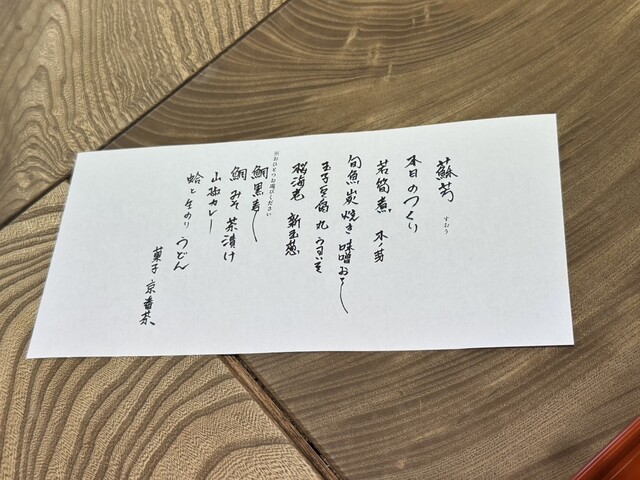 蘇芳
すおう
本日のつくり
若筍煮 木ノ芽
旬魚炭焼き 味噌おろし
玉子豆腐 丸 うすいえ
桜海老 新玉葱
※おひとつお選びください
鯛黒寿し
鯛みそ茶漬け
山椒カレー
蛤と生のり うどん
菓子 京番茶